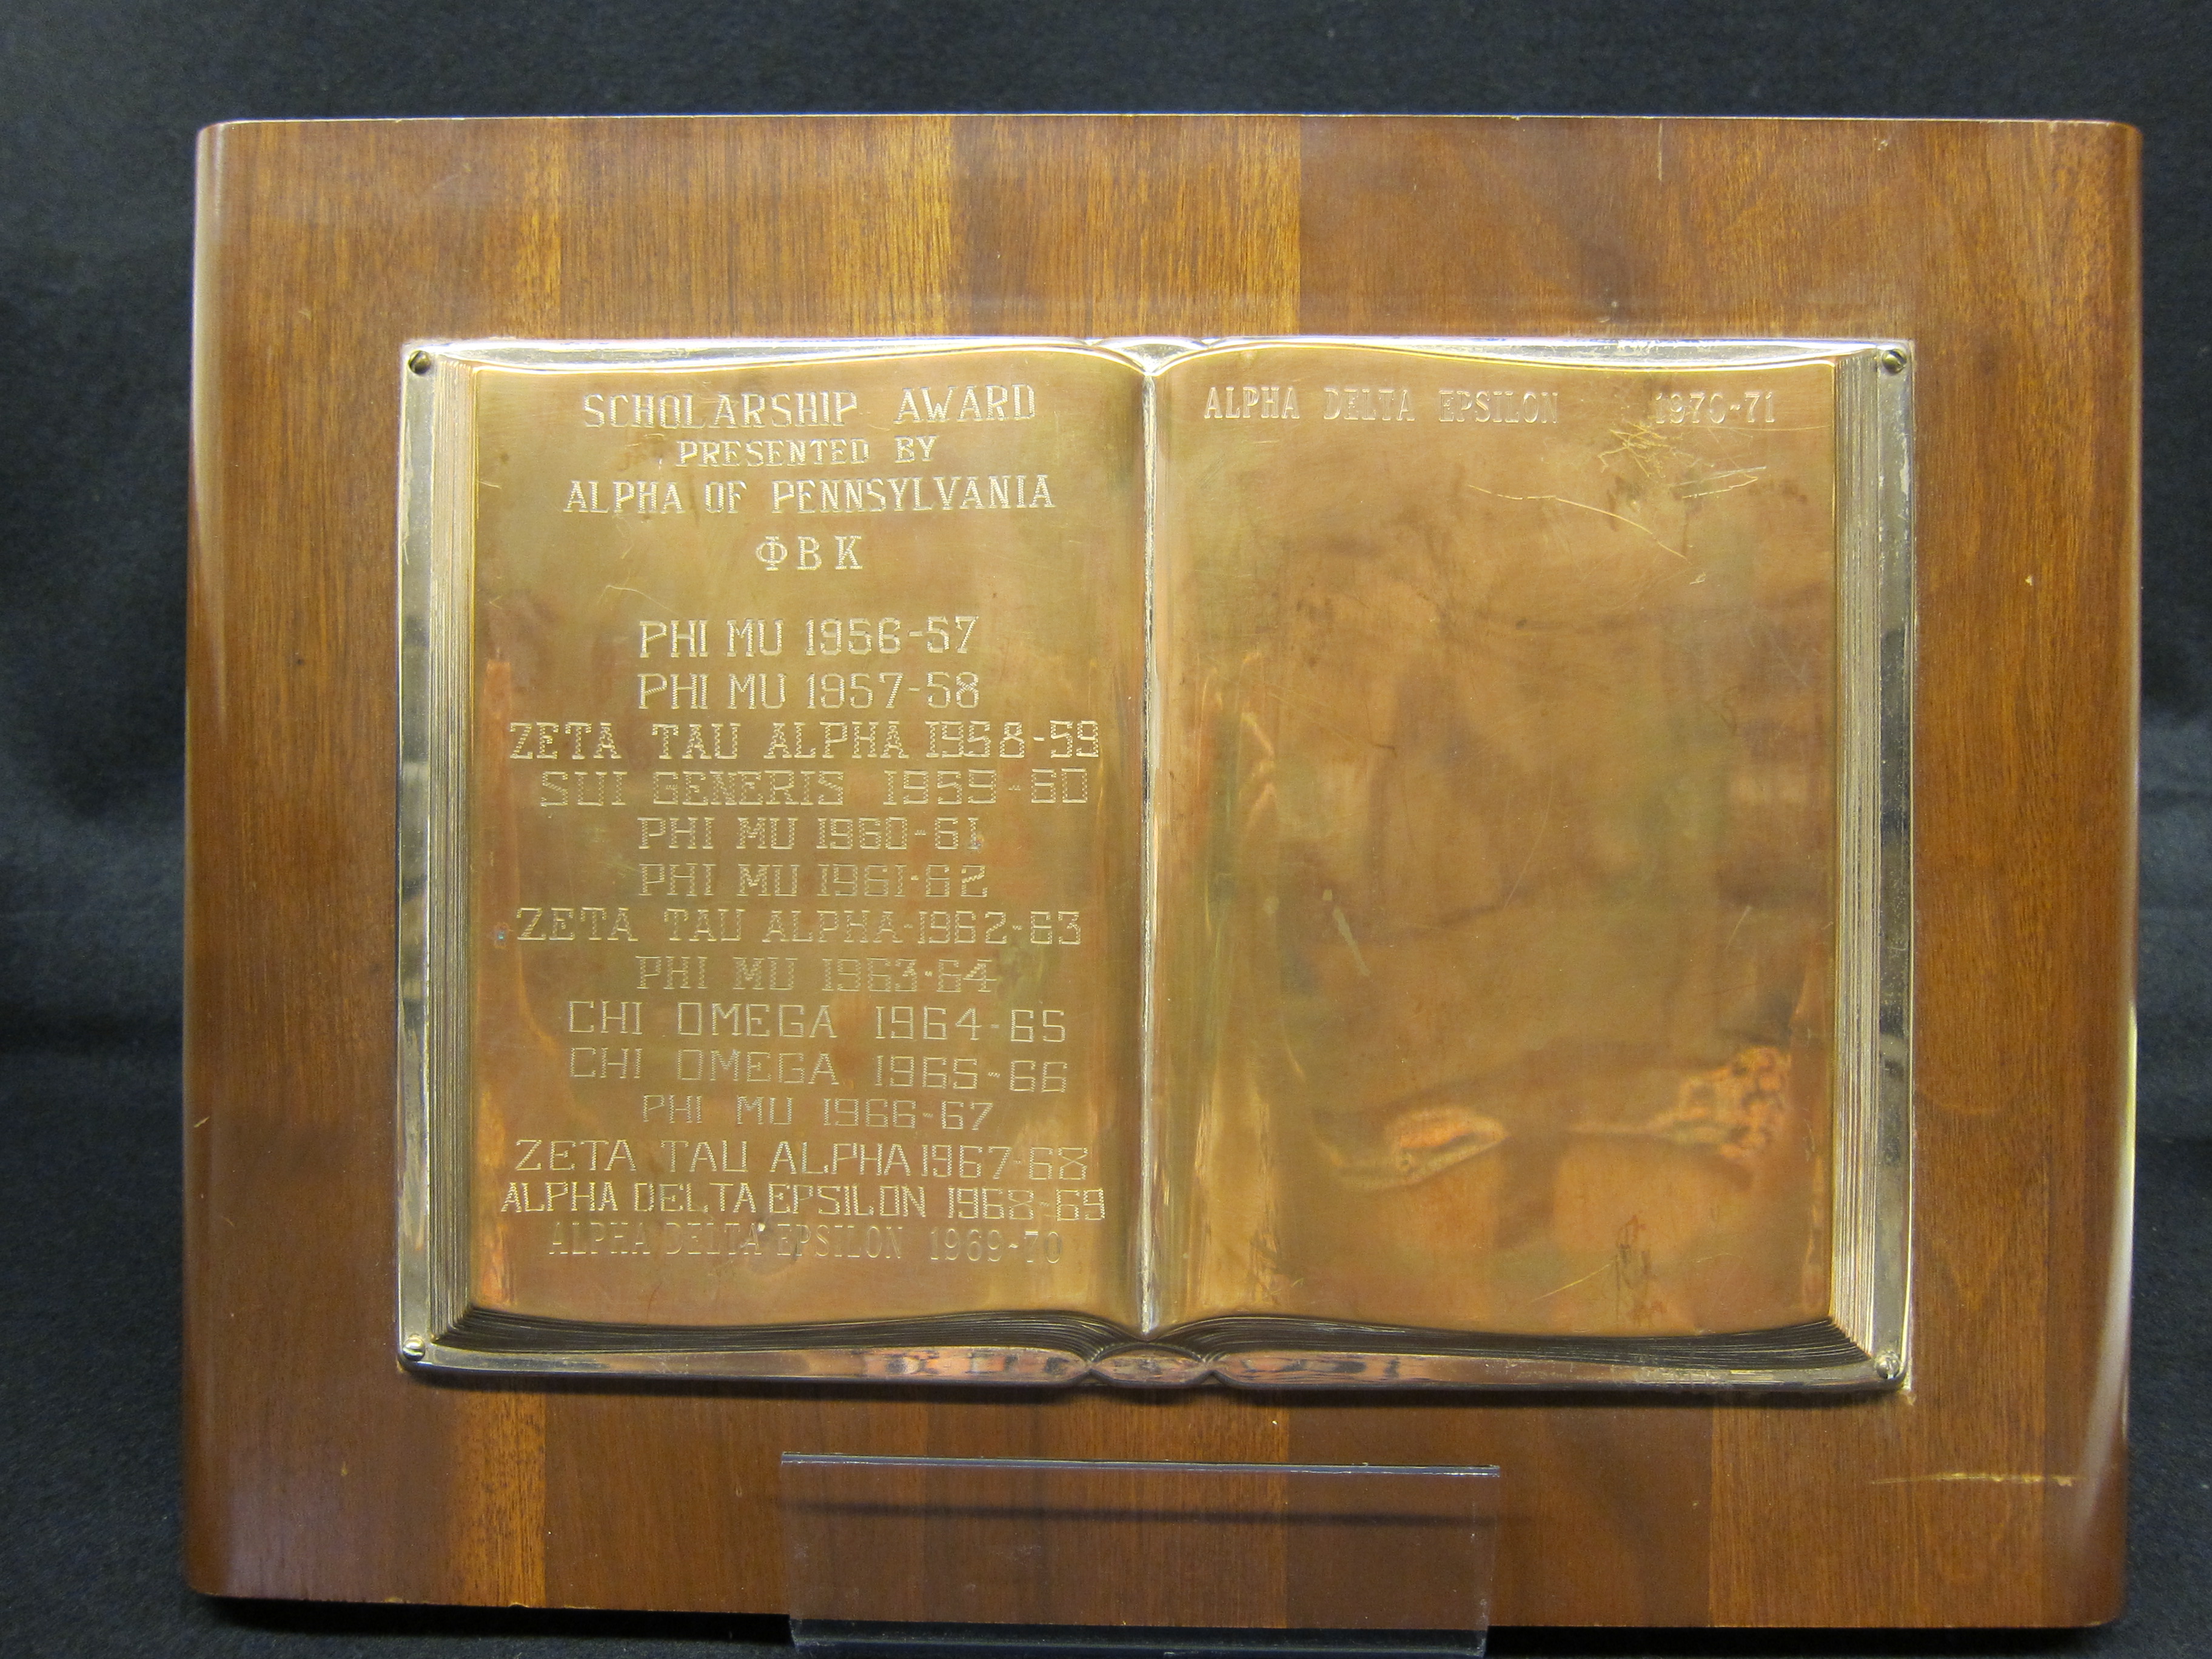 SCHOLARSHIP AWARD
PRESENTED BY
ALPHA OF PENNSYLVANIA
ΦΒΚ
PHI MU 1956-57
PHI MU 1957-58
ZETA TAU ALPHA 1958-59
SUI GENERIS 1959-60
PHI MU 1960-61
PHI MU 1961-62
ZETA TAU ALPHA-1962-63
PHI MU 1963-64
CHI OMEGA 1964-65
CHI OMEGA 1965-66
PHI MU 1966-67
ZETA TAU ALPHA 1967-68
ALPHA DELTA EPSILON 1968-69
ALPHA DELTA EPSILON 1969-70
ALPHA DELTA EPSILON 1970-71